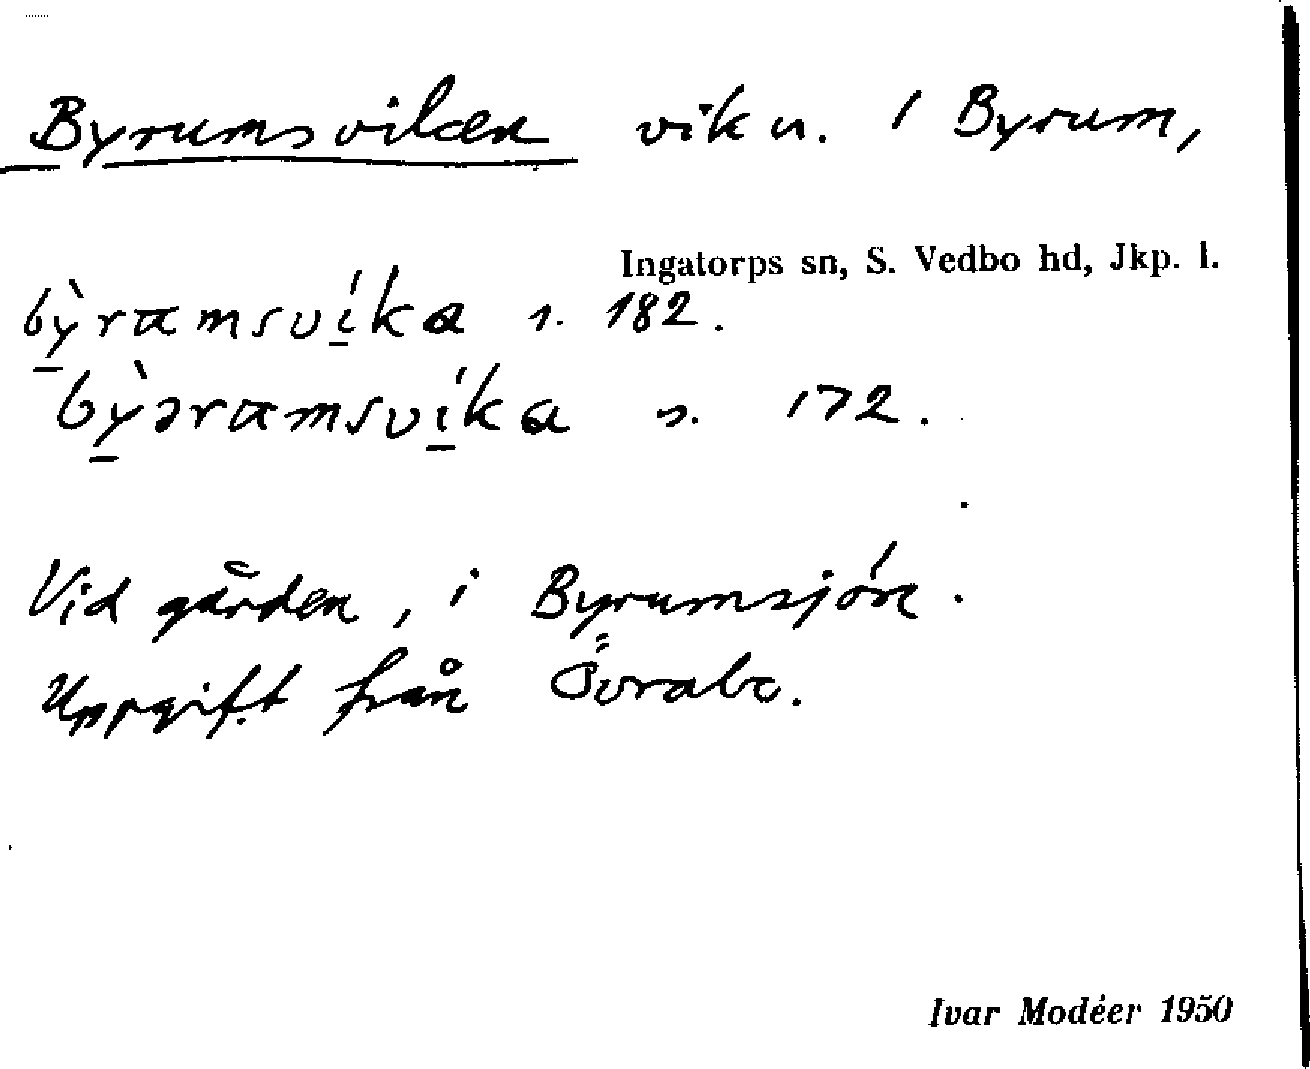 Byrumsviken vik u. / Byrum,
Ingatorps sn, S. Vedbo hd, Jkp. l.
bỳ̱ramsví̱ka s. 182.
bỳ̱əramsví̱ka s. 172.
Vid gården, i Byrumsjön.
Uppgift från Övrabo.
Ivar Modéer 1950